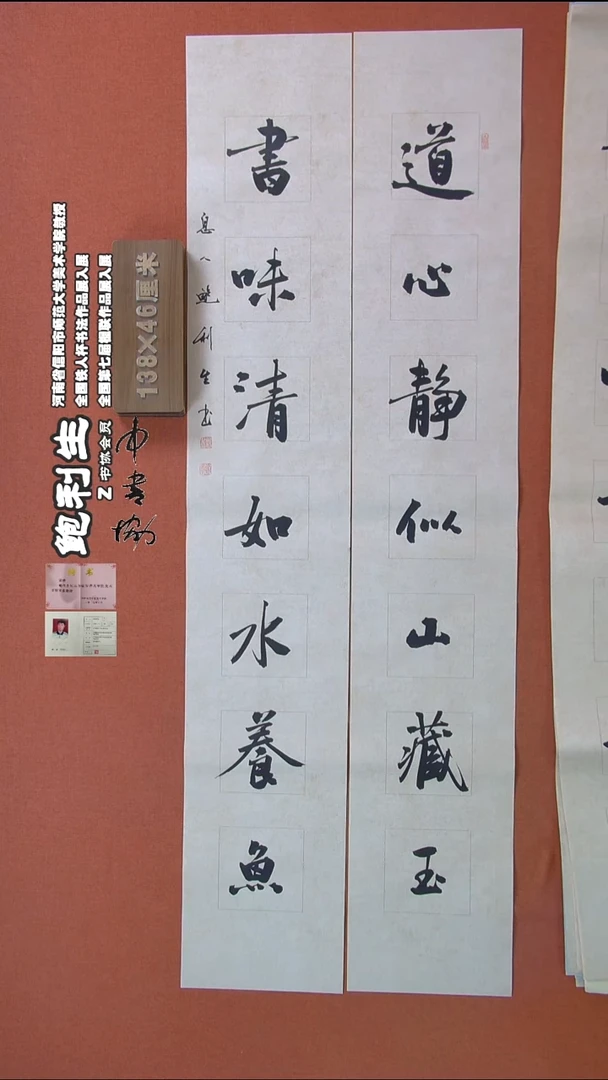 道心靜似山藏玉
書味清如水養魚
息人鮑利生書
138×46厘米
河南省信阳市师范大学美术学院教授
全国铁人杯书法作品展入展
全国第七届楹联作品展入展
鲍利生
Z书协会员
中书协